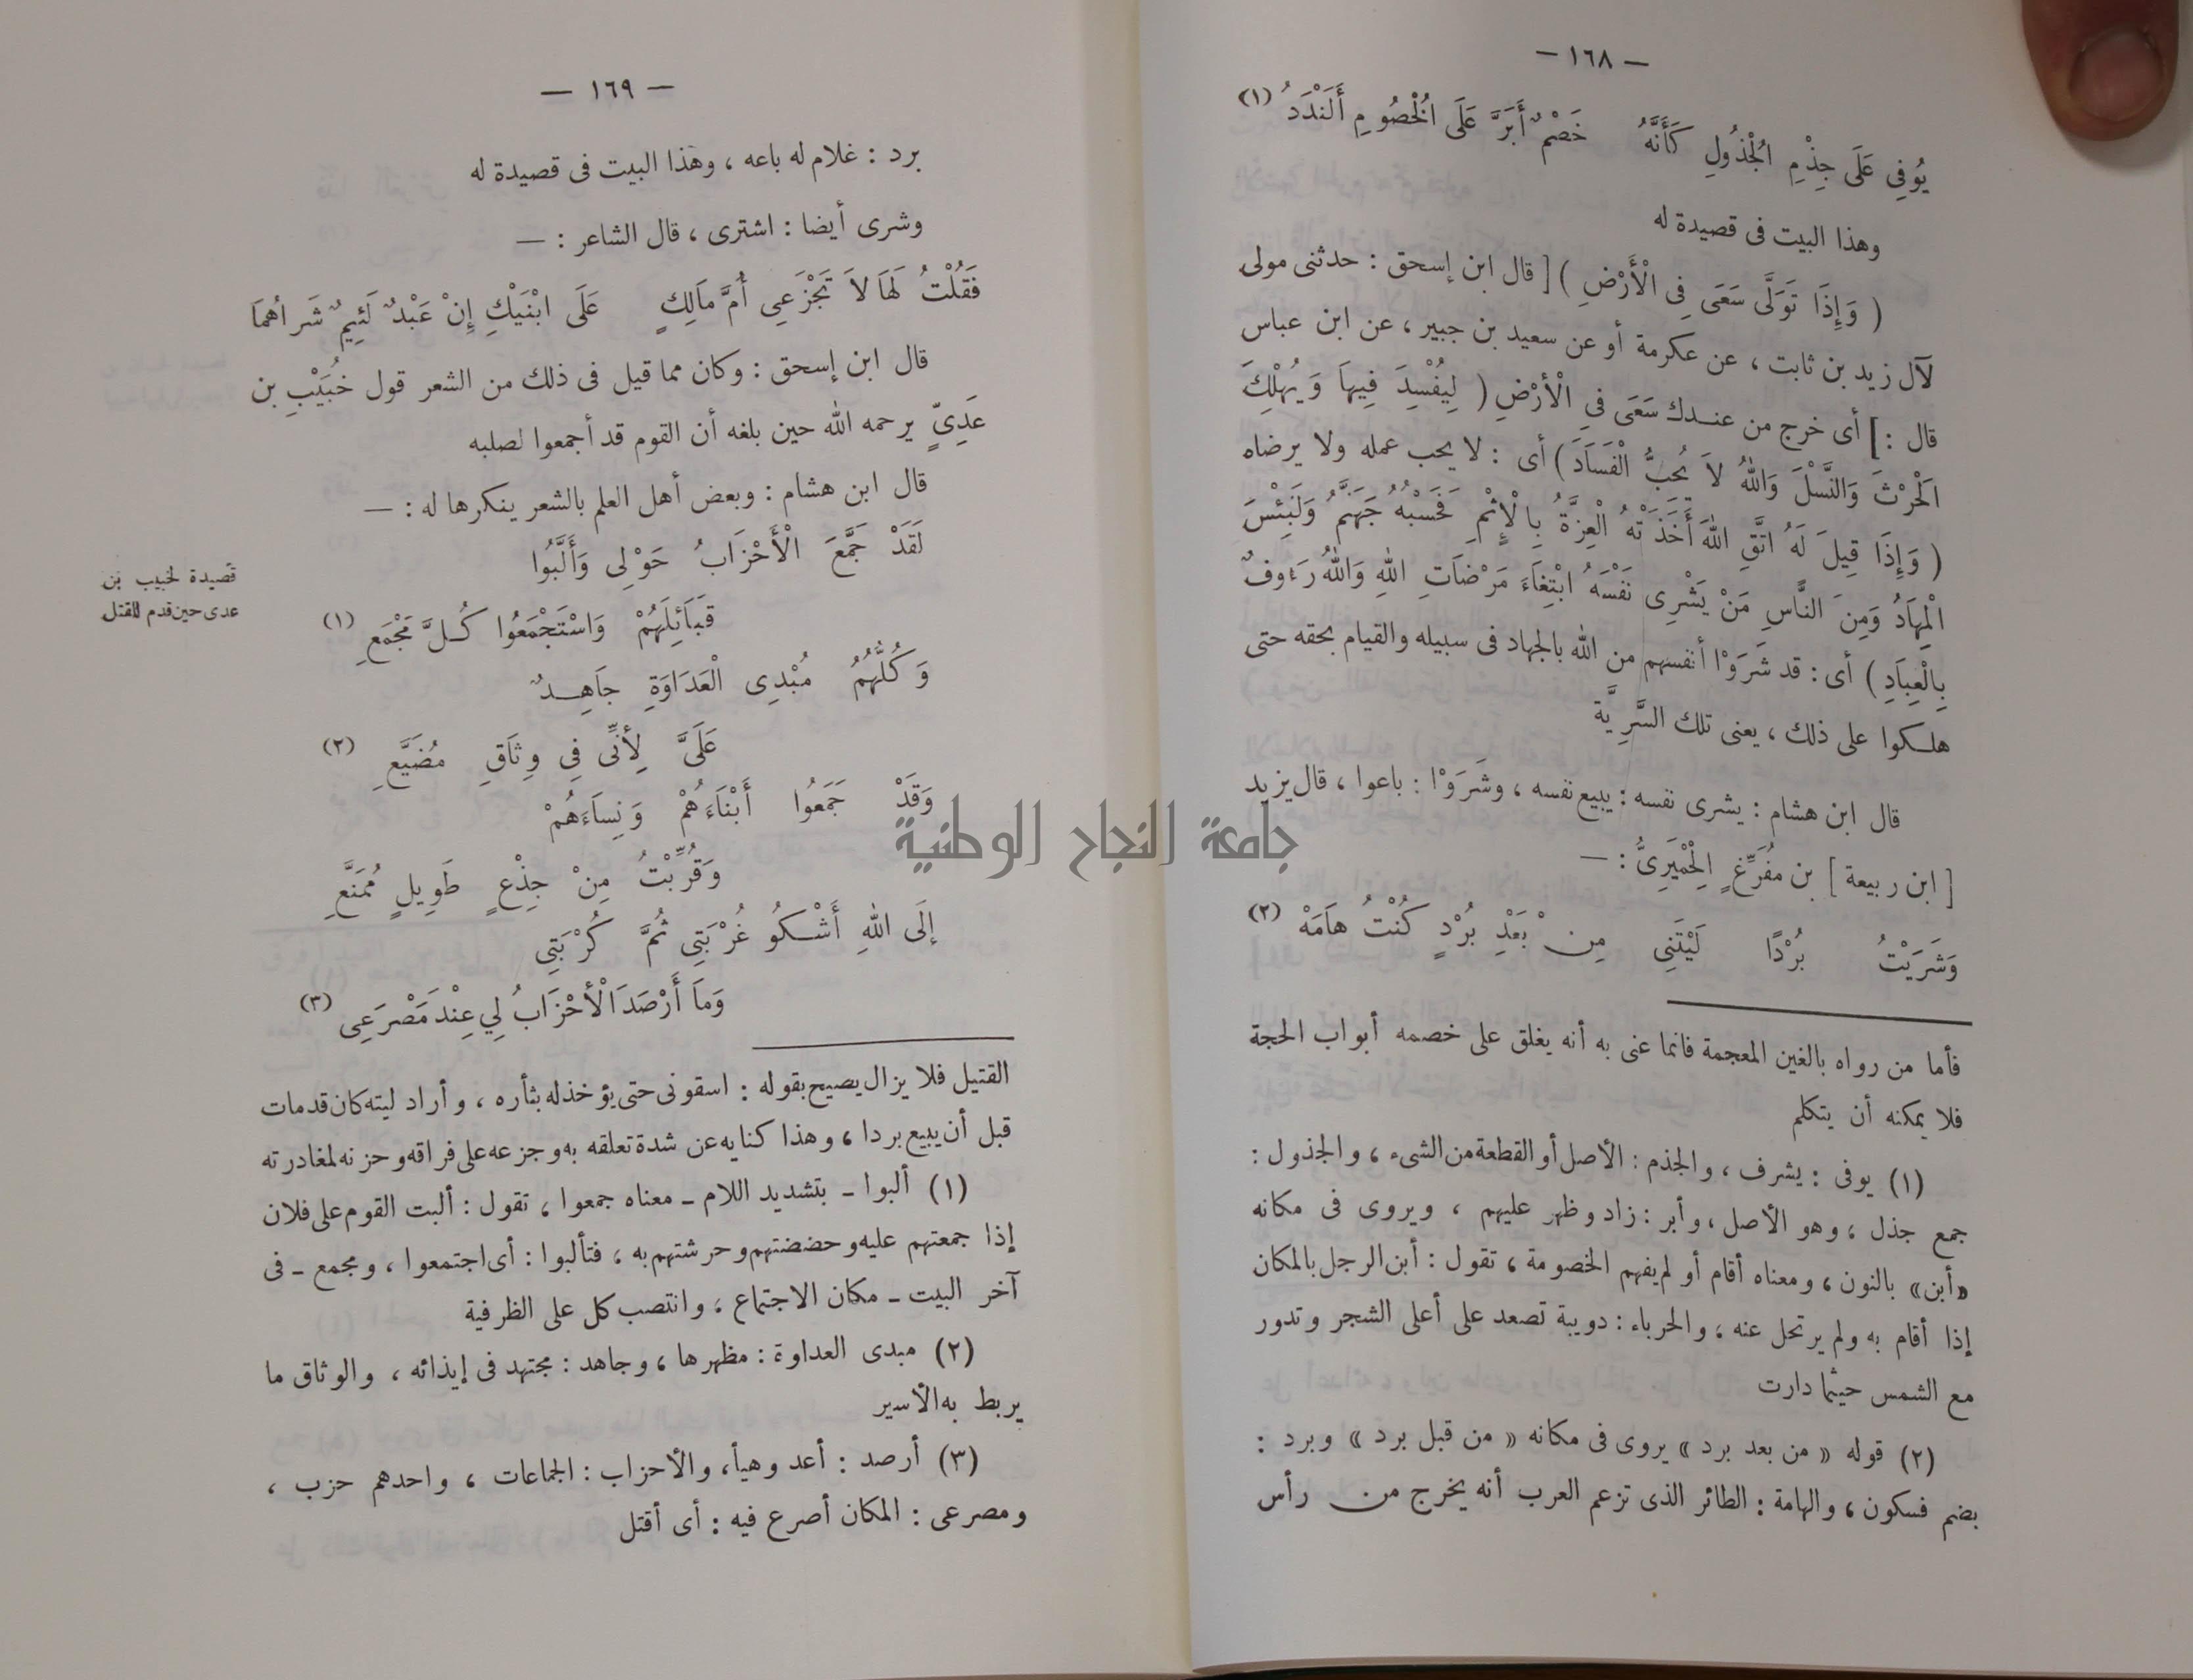 — ١٦٨ —
يُوفِي عَلَى جِذْمِ الْجُذُولِ كَأَنَّهُ خَصْمٌ أَبَرَّ عَلَى الْخُصُومِ أَلَنْدَدُ (١)
وهذا البيت فى قصيدة له
( وَإِذَا تَوَلَّى سَعَى فِى الْأَرْضِ ) [ قال ابن إسحق : حدثنى مولى
لآل زيد بن ثابت ، عن عكرمة أو عن سعيد بن جبير ، عن ابن عباس
قال : ] أى خرج من عندك سَعَى فِى الْأَرْضِ ( لِيُفْسِدَ فِيهَا وَيُهْلِكَ
الْحَرْثَ وَالنَّسْلَ وَاللهُ لاَ يُحِبُّ الْفَسَادَ ) أى : لا يحب عمله ولا يرضاه
( وَإِذَا قِيلَ لَهُ اتَّقِ اللهَ أَخَذَتْهُ الْعِزَّةُ بِالْإِثْمِ فَحَسْبُهُ جَهَنَّمُ وَلَبِئْسَ
الْمِهَادُ وَمِنَ النَّاسِ مَنْ يَشْرِى نَفْسَهُ ابْتِغَاءَ مَرْضَاتِ اللهِ وَاللهُ رَءُوفٌ
بِالْعِبَادِ ) أى : قد شَرَوْا أنفسهم من الله بالجهاد فى سبيله والقيام بحقه حتى
هلكوا على ذلك ، يعنى تلك السَّرِيَّة
قال ابن هشام : يشرى نفسه : يبيع نفسه ، وشَرَوْا : باعوا ، قال يزيد
[ ابن ربيعة ] بن مُفَرِّغٍ الْحِمْيَرِىُّ : —
وَشَرَيْتُ بُرْدًا لَيْتَنِى مِنْ بَعْدِ بُرْدٍ كُنْتُ هَامَهْ (٢)
فأما من رواه بالغين المعجمة فانما عنى به أنه يغلق على خصمه أبواب الحجة
فلا يمكنه أن يتكلم
(١) يوفى : يشرف ، والجذم : الأصل أو القطعة من الشىء ، والجذول :
جمع جذل ، وهو الأصل ، وأبر : زاد وظهر عليهم ، ويروى فى مكانه
«أبن» بالنون ، ومعناه أقام أو لم يفهم الخصومة ، تقول : أبن الرجل بالمكان
إذا أقام به ولم يرتحل عنه ، والحرباء : دويبة تصعد على أعلى الشجر وتدور
مع الشمس حيثما دارت
(٢) قوله « من بعد برد » يروى فى مكانه « من قبل برد » وبرد :
بضم فسكون ، والهامة : الطائر الذى تزعم العرب أنه يخرج من رأس
— ١٦٩ —
برد : غلام له باعه ، وهذا البيت فى قصيدة له
وشرى أيضا : اشترى ، قال الشاعر : —
فَقُلْتُ لَهَا لاَ تَجْزَعِى أُمَّ مَالِكٍ عَلَى ابْنَيْكِ إِنْ عَبْدٌ لَئِيمٌ شَرَاهُمَا
قال ابن إسحق : وكان مما قيل فى ذلك من الشعر قول خُبَيْبِ بن
عَدِىٍّ يرحمه الله حين بلغه أن القوم قد أجمعوا لصلبه
قال ابن هشام : وبعض أهل العلم بالشعر ينكرها له : —
لَقَدْ جَمَّعَ الْأَحْزَابُ حَوْلِى وَأَلَّبُوا
قَبَائِلَهُمْ وَاسْتَجْمَعُوا كُلَّ مَجْمَعِ (١)
وَكُلُّهُمُ مُبْدِى الْعَدَاوَةِ جَاهِدٌ
عَلَىَّ لِأَنِّى فِى وِثَاقِ مُضَيَّعِ (٢)
وَقَدْ جَمَعُوا أَبْنَاءَهُمْ وَنِسَاءَهُمْ
وَقُرِّبْتُ مِنْ جِذْعٍ طَوِيلٍ مُمَنَّعِ
إِلَى اللهِ أَشْكُو غُرْبَتِى ثُمَّ كُرْبَتِى
وَمَا أَرْصَدَ الْأَحْزَابُ لِي عِنْدَ مَصْرَعِى (٣)
القتيل فلا يزال يصيح بقوله : اسقونى حتى يؤخذ له بثأره ، وأراد ليته كان قد مات
قبل أن يبيع بردا ، وهذا كنايه عن شدة تعلقه به وجزعه على فراقه وحزنه لمغادرته
(١) ألبوا ـ بتشديد اللام ـ معناه جمعوا ، تقول : ألبت القوم على فلان
إذا جمعتهم عليه وحضضتهم وحرشتهم به ، فتألبوا : أى اجتمعوا ، ومجمع ـ فى
آخر البيت ـ مكان الاجتماع ، وانتصب كل على الظرفية
(٢) مبدى العداوة : مظهرها ، وجاهد : مجتهد فى إيذائه ، والوثاق ما
يربط به الأسير
(٣) أرصد : أعد وهيأ ، والأحزاب : الجماعات ، واحدهم حزب ،
ومصرعى : المكان أصرع فيه : أى أقتل
قصيدة لخبيب بن
عدى حين قدم للقتل
جامعة النجاح الوطنية